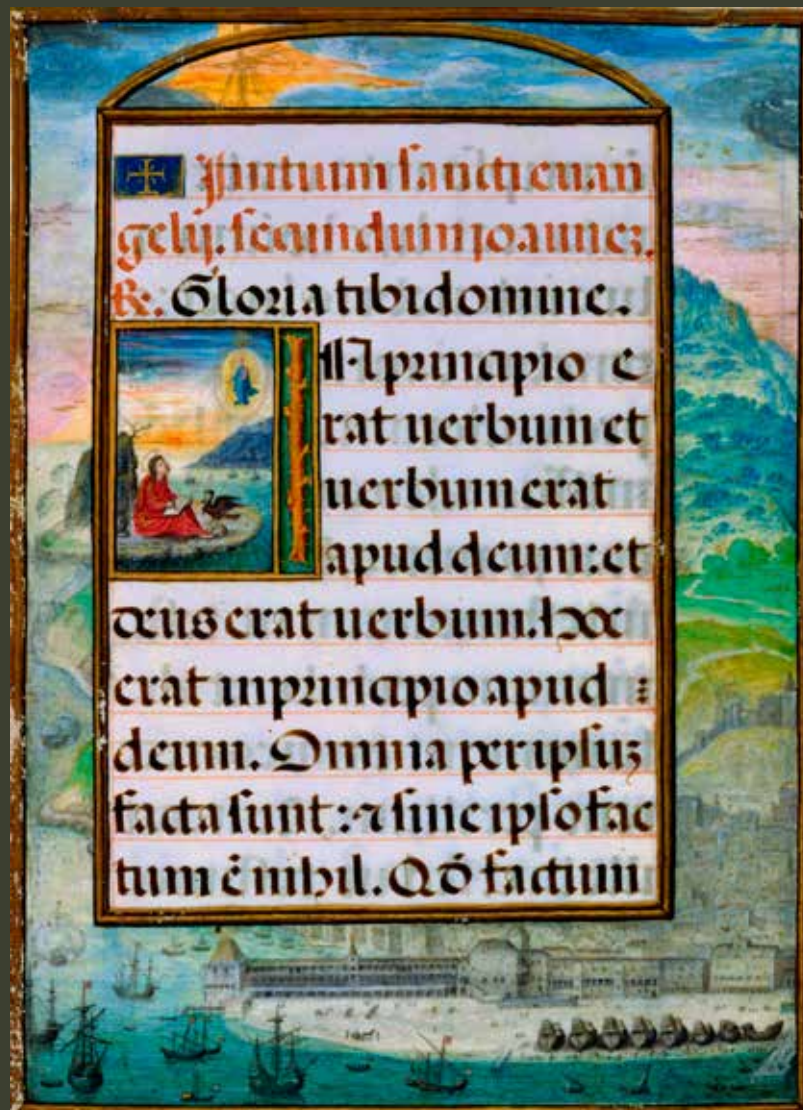 Initium sancti euan
gelij. secundum ioannez.
R. Gloria tibi domine.
IN principio e
rat uerbum et
uerbum erat
apud deum: et
deus erat uerbum. hoc
erat in principio apud
deum. Omnia per ipsuz
facta sunt: ⁊ sine ipso fac
tum ẽ nihil. Qõ factum